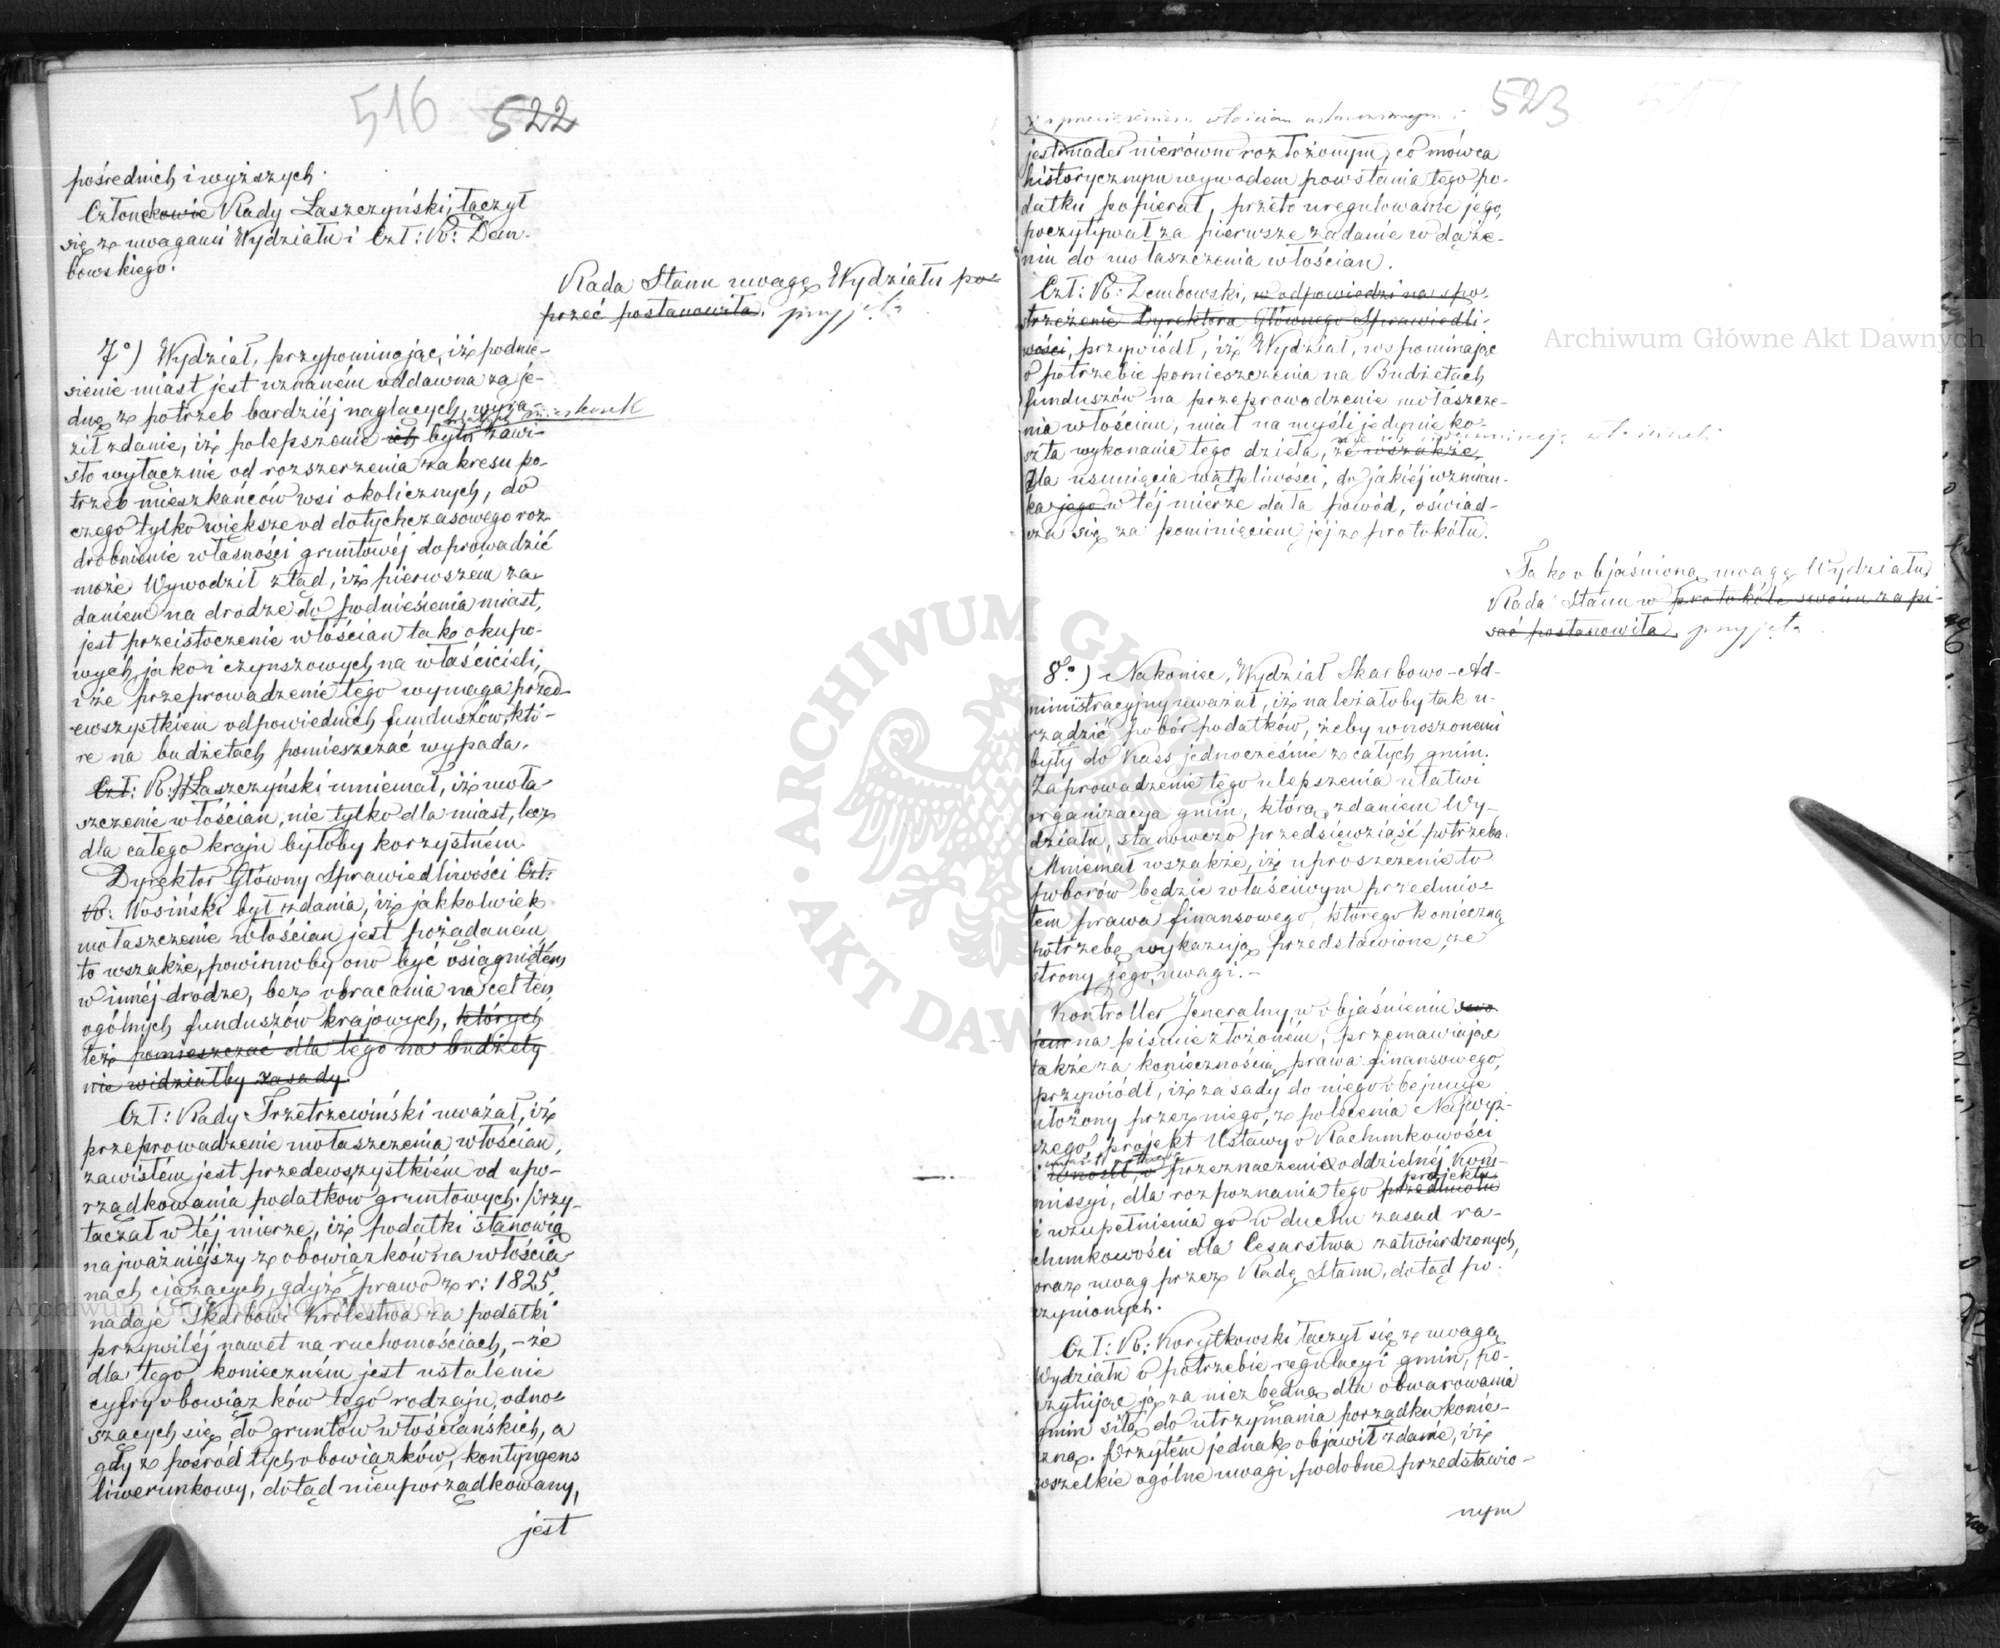 516 522
pośrednich i wyższych.
Członkowie Rady Łaszczyński, łączył
się z uwagami Wydziału i Czł: R: Dem-
bowskiego.
Rada Stanu uwagę Wydziału po-
przeć postanowiła. przyjęła
7o) Wydział, przypominając, iż podnie-
sienie miast jest uznaném oddawna za je-
dnę z potrzeb bardziéj naglących, wyra-
ził zdanie, iż polepszenie ich bytu zawi-
sło wyłącznie od rozszerzenia zakresu po-
trzeb mieszkańców wsi okolicznych, do
czego tylko większe od dotychczasowego roz-
drobnienie własności gruntowéj doprowadzić
może Wywodził ztąd, iż pierwszém za-
daniem na drodze do podniesienia miast,
jest przeistoczenie włościan tak okupo-
wych, jako i czynszowych, na właścicieli,
i że przeprowadzenie tego wymaga przed-
ewszystkiem odpowiednich funduszów, któ-
re na budżetach pomieszczać wypada.
Czł: R: Łaszczyński mniemał, iż uwła-
szczenie włościan, nie tylko dla miast, lecz
dla całego kraju byłoby korzystném.
Dyrektor Główny Sprawiedliwości Czł:
R: Wosiński był zdania, iż jakkolwiek
uwłaszczenie włościan jest pożądaném
to wszakże, powinnoby ono być osiągniętém
w innéj drodze, bez obracania na cel ten
ogólnych funduszów krajowych, których
też pomieszczać dla tego na budżety
nie widziałby zasady.
Czł: Rady Trzetrzewiński uważał, iż
przeprowadzenie uwłaszczenia włościan,
zawisłém jest przedewszystkiém od upo-
rządkowania podatków gruntowych. Przy-
taczał w téj mierze, iż podatki stanowią
najważniéjszy z obowiązków na włościa-
nach ciążących, gdyż prawo z r: 1825,
nadaje Skarbowi Królestwa za podatki
przywiléj nawet na ruchomościach, – że
dla tego konieczném jest ustalenie
cyfry obowiązków tego rodzaju, odno-
szących się do gruntów włościańskich, a
gdy z pośród tych obowiązków, kontyngens
liwerunkowy, dotąd nieuporządkowany,
jest
523
jest nader nierówno rozłożonym, co mówca
historycznym wywodem powstania tego po-
datku popierał, przeto uregulowanie jego,
poczytywał za pierwsze zadanie w dąże-
niu do uwłaszczenia włościan.
Czł: R: Dembowski, w odpowiedzi na spo-
strzeżenie Dyrektora Głównego Sprawiedli-
wości, przywiódł, iż Wydział, wspominając
o potrzebie pomieszczenia na Budżetach
funduszów na przeprowadzenie uwłaszcze-
nia włościan, miał na myśli jedynie ko-
szta wykonania tego dzieła, że wszakże,
Dla usunięcia wątpliwości, do jakiéj wzmian-
ka jego w téj mierze dała powód, oświad-
cza się za pominięciem jéj z protokółu.
Tako objaśnioną uwagę Wydziału
Rada Stanu w protokóle swoim zapi-
sać postanowiła. przyjęła
8o.) Nakoniec, Wydział Skarbowo-Ad-
ministracyjny uważał, iż należałoby tak u-
rządzić pobór podatków, żeby wnoszonemi
były do Kass jednocześnie z całych gmin.
Zaprowadzenie tego ulepszenia ułatwi
organizacya gmin, którą, zdaniem Wy-
działu, stanowczo przedsięwziąść potrzeba.
Mniemał wszakże, iż uproszczenie to
poborów będzie właściwym przedmio-
tem prawa finansowego, którego konieczną
potrzebę wykazują przedstawione, ze
strony jego, uwagi. –
Kontroller Jeneralny, w objaśnieniu swo-
jem na piśmie złożoném, przemawiając
także za koniecznością prawa finansowego,
przywiódł, iż zasady do niego obejmuje
ułożony przez niego, z polecenia Najwyż-
szego, projekt Ustawy o Rachunkowości
i wnosił, o przeznaczenie oddzielnéj Kom-
missyi, dla rozpoznania tego przedmiotu projektu
i uzupełnienia go w duchu zasad ra-
chunkowości dla Cesarstwa zatwierdzonych,
oraz uwag przez Radę Stanu, dotąd po-
czynionych.
Czł: R: Korytkowski łączył się z uwagą
Wydziału o potrzebie regulacyi gmin, po-
czytując ją za niezbędną dla obwarowania
gmin siłą do utrzymania porządku konie-
czną. Przytém jednak objawił zdanie, iż
wszelkie ogólne uwagi, podobne przedstawio-
nym
Archiwum Główne Akt Dawnych
Archiwum Główne Akt Dawnych
ARCHIWUM GŁÓWNE AKT DAWNYCH